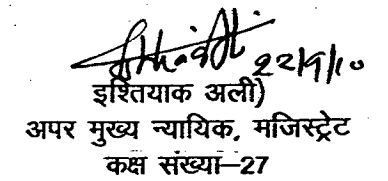 22/9/10
इश्तियाक अली)
अपर मुख्य न्यायिक, मजिस्ट्रेट
कक्ष संख्या–27